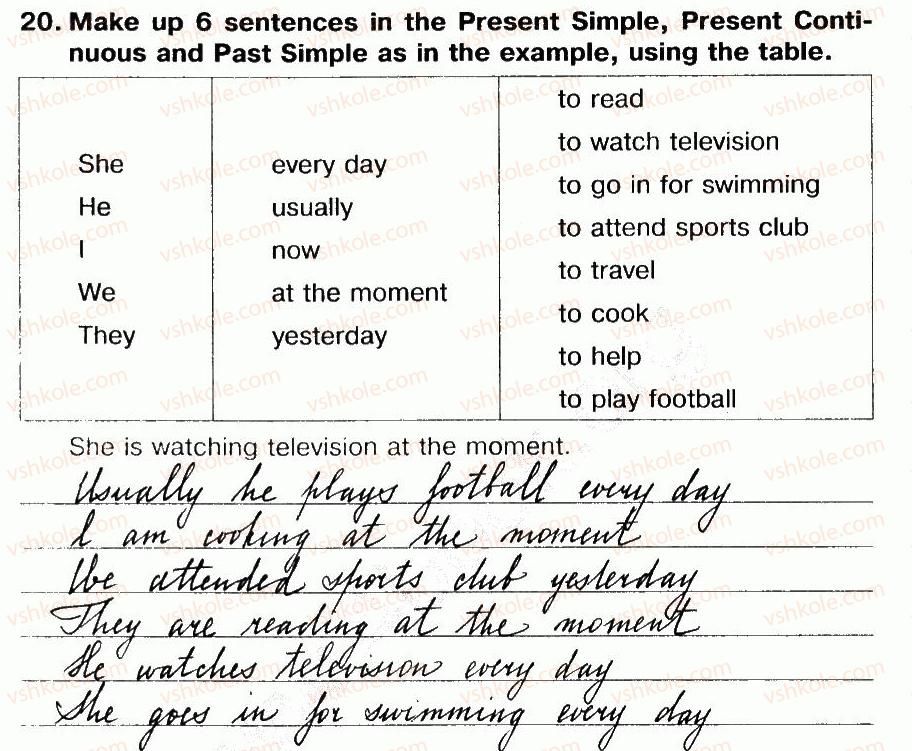 20. Make up 6 sentences in the Present Simple, Present Conti-
nuous and Past Simple as in the example, using the table.
She
He
I
We
They
every day
usually
now
at the moment
yesterday
to read
to watch television
to go in for swimming
to attend sports club
to travel
to cook
to help
to play football
She is watching television at the moment.
Usually he plays football every day
I am cooking at the moment
We attended sports club yesterday
They are reading at the moment
He watches television every day
She goes in for swimming every day
vshkole.com